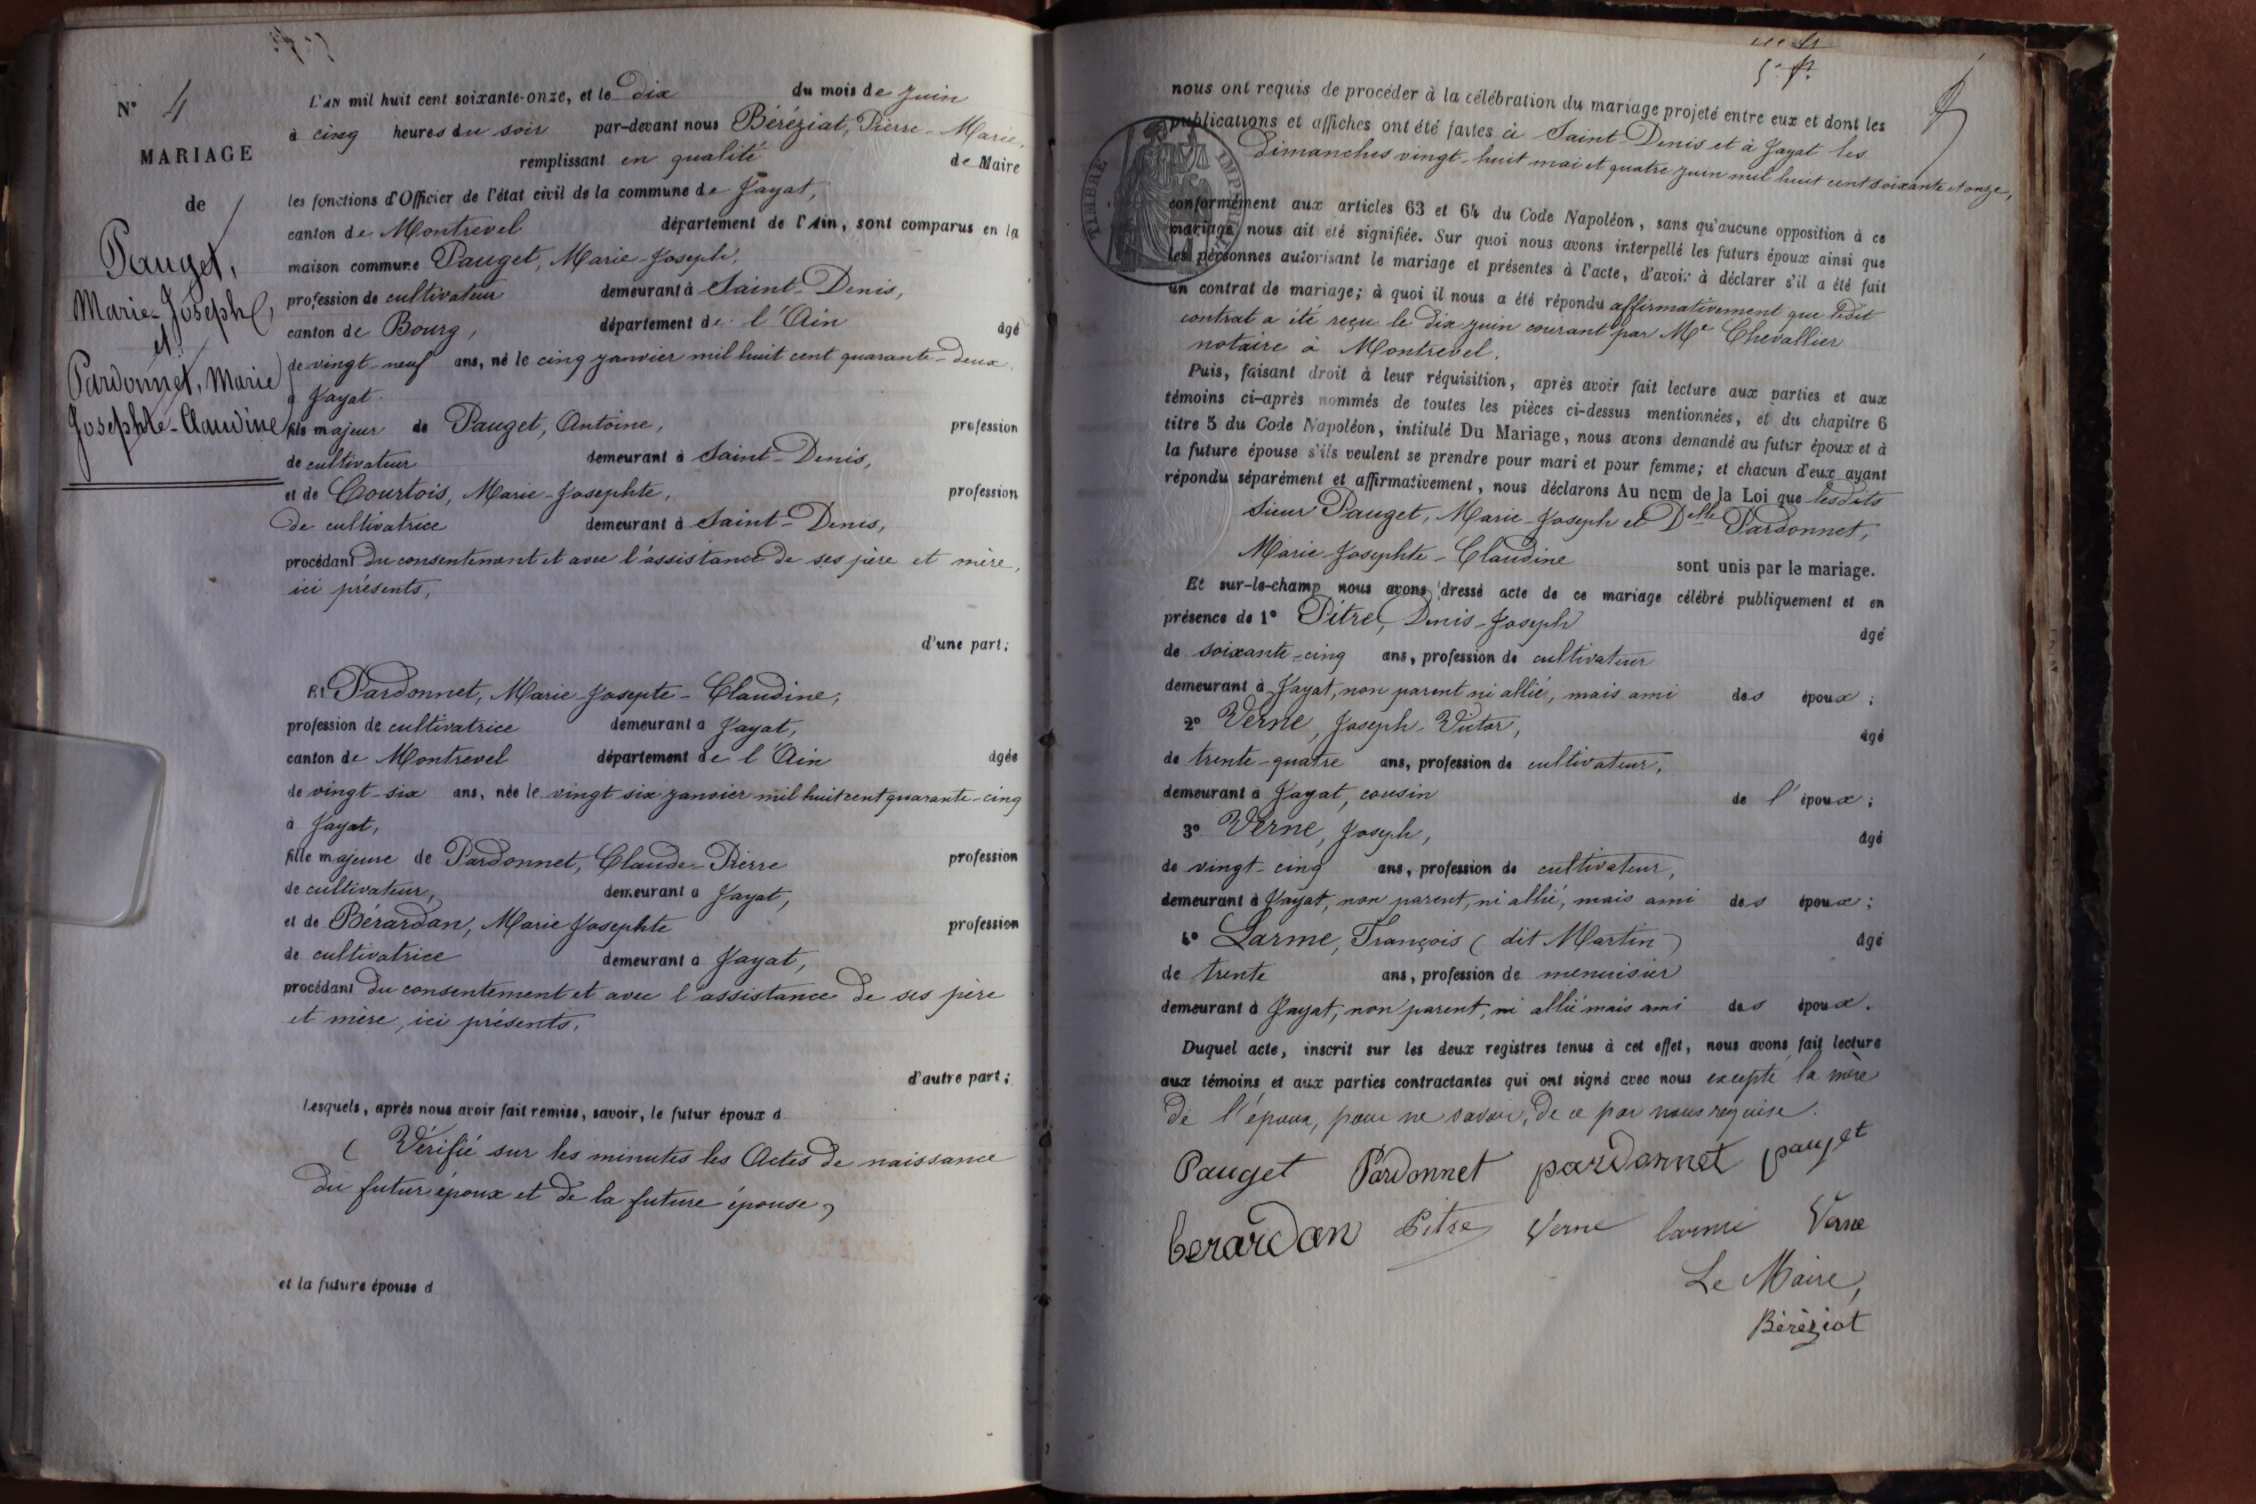 N° 4
MARIAGE
de
Pauget,
Marie-Joseph,
et
Pardonnet, Marie
Josephte-Claudine
L'AN mil huit cent soixante-onze, et le dix du mois de juin
à cinq heures du soir par-devant nous Béréziat, Pierre-Marie,
remplissant en qualité de Maire
les fonctions d'Officier de l'état civil de la commune de Jayat,
canton de Montrevel département de l'Ain, sont comparus en la
maison commune Pauget, Marie-Joseph,
profession de cultivateur demeurant à Saint-Denis,
canton de Bourg, département de l'Ain âgé
de vingt-neuf ans, né le cinq janvier mil huit cent quarante-deux
à Jayat.
fils majeur de Pauget, Antoine, profession
de cultivateur demeurant à Saint-Denis,
et de Courtois, Marie-Josephte, profession
de cultivatrice demeurant à Saint-Denis,
procédant du consentement et avec l'assistance de ses père et mère,
ici présents,
d'une part;
Et Pardonnet, Marie-Josepte-Claudine,
profession de cultivatrice demeurant à Jayat,
canton de Montrevel département de l'Ain âgée
de vingt-six ans, née le vingt-six janvier mil huit cent quarante-cinq
à Jayat,
fille majeure de Pardonnet, Claude-Pierre profession
de cultivateur, demeurant à Jayat,
et de Bérardan, Marie Josephte profession
de cultivatrice demeurant à Jayat,
procédant du consentement et avec l'assistance de ses père
et mère, ici présents,
d'autre part;
Lesquels, après nous avoir fait remise, savoir, le futur époux d
( Vérifié sur les minutes les Actes de naissance
du futur époux et de la future épouse )
et la future épouse d
nous ont requis de procéder à la célébration du mariage projeté entre eux et dont les
publications et affiches ont été faites à Saint-Denis et à Jayat les
dimanches vingt-huit mai et quatre juin mil huit cent soixante et onze,
TIMBRE IMPERIAL
conformément aux articles 63 et 64 du Code Napoléon, sans qu'aucune opposition à ce
mariage nous ait été signifiée. Sur quoi nous avons interpellé les futurs époux ainsi que
les personnes autorisant le mariage et présentes à l'acte, d'avoir à déclarer s'il a été fait
un contrat de mariage; à quoi il nous a été répondu affirmativement que ledit
contrat a été reçu le dix juin courant par Me Chevallier
notaire à Montrevel.
Puis, faisant droit à leur réquisition, après avoir fait lecture aux parties et aux
témoins ci-après nommés de toutes les pièces ci-dessus mentionnées, et du chapitre 6
titre 5 du Code Napoléon, intitulé Du Mariage, nous avons demandé au futur époux et à
la future épouse s'ils veulent se prendre pour mari et pour femme; et chacun d'eux ayant
répondu séparément et affirmativement, nous déclarons Au nom de la Loi que lesdits
sieur Pauget, Marie-Joseph et Delle Pardonnet,
Marie-Josephte-Claudine sont unis par le mariage.
Et sur-le-champ nous avons dressé acte de ce mariage célébré publiquement et en
présence de 1° Pitre, Denis-Joseph âgé
de soixante-cinq ans, profession de cultivateur
demeurant à Jayat, non parent ni allié, mais ami des époux;
2° Verne, Joseph-Victor, âgé
de trente-quatre ans, profession de cultivateur,
demeurant à Jayat, cousin de l'époux;
3° Verne, Joseph, âgé
de vingt-cinq ans, profession de cultivateur,
demeurant à Jayat, non parent, ni allié, mais ami des époux;
4° Larme, François (dit Martin) âgé
de trente ans, profession de menuisier
demeurant à Jayat, non parent, ni allié mais ami des époux.
Duquel acte, inscrit sur les deux registres tenus à cet effet, nous avons fait lecture
aux témoins et aux parties contractantes qui ont signé avec nous excepté la mère
de l'époux, pour ne savoir, de ce par nous requise.
Pauget Pardonnet pardonnet pauget
berardan Pitre Verne larme Verne
Le Maire,
Béréziat